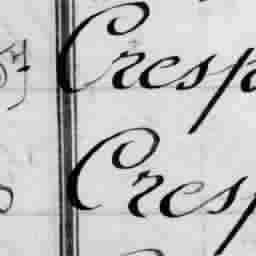 Cresp
Cresp